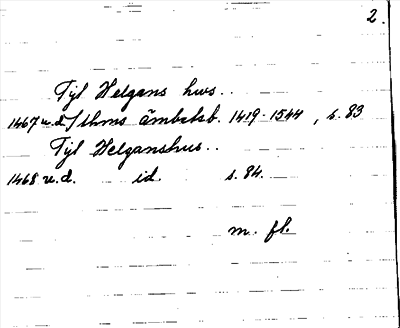 2.
Tyl Helgans hws..
1467 u.d. Sthms ämbetsb. 1419-1544, s. 83
Tyl Helganshus..
1468 u.d. id. s. 84.
m. fl.